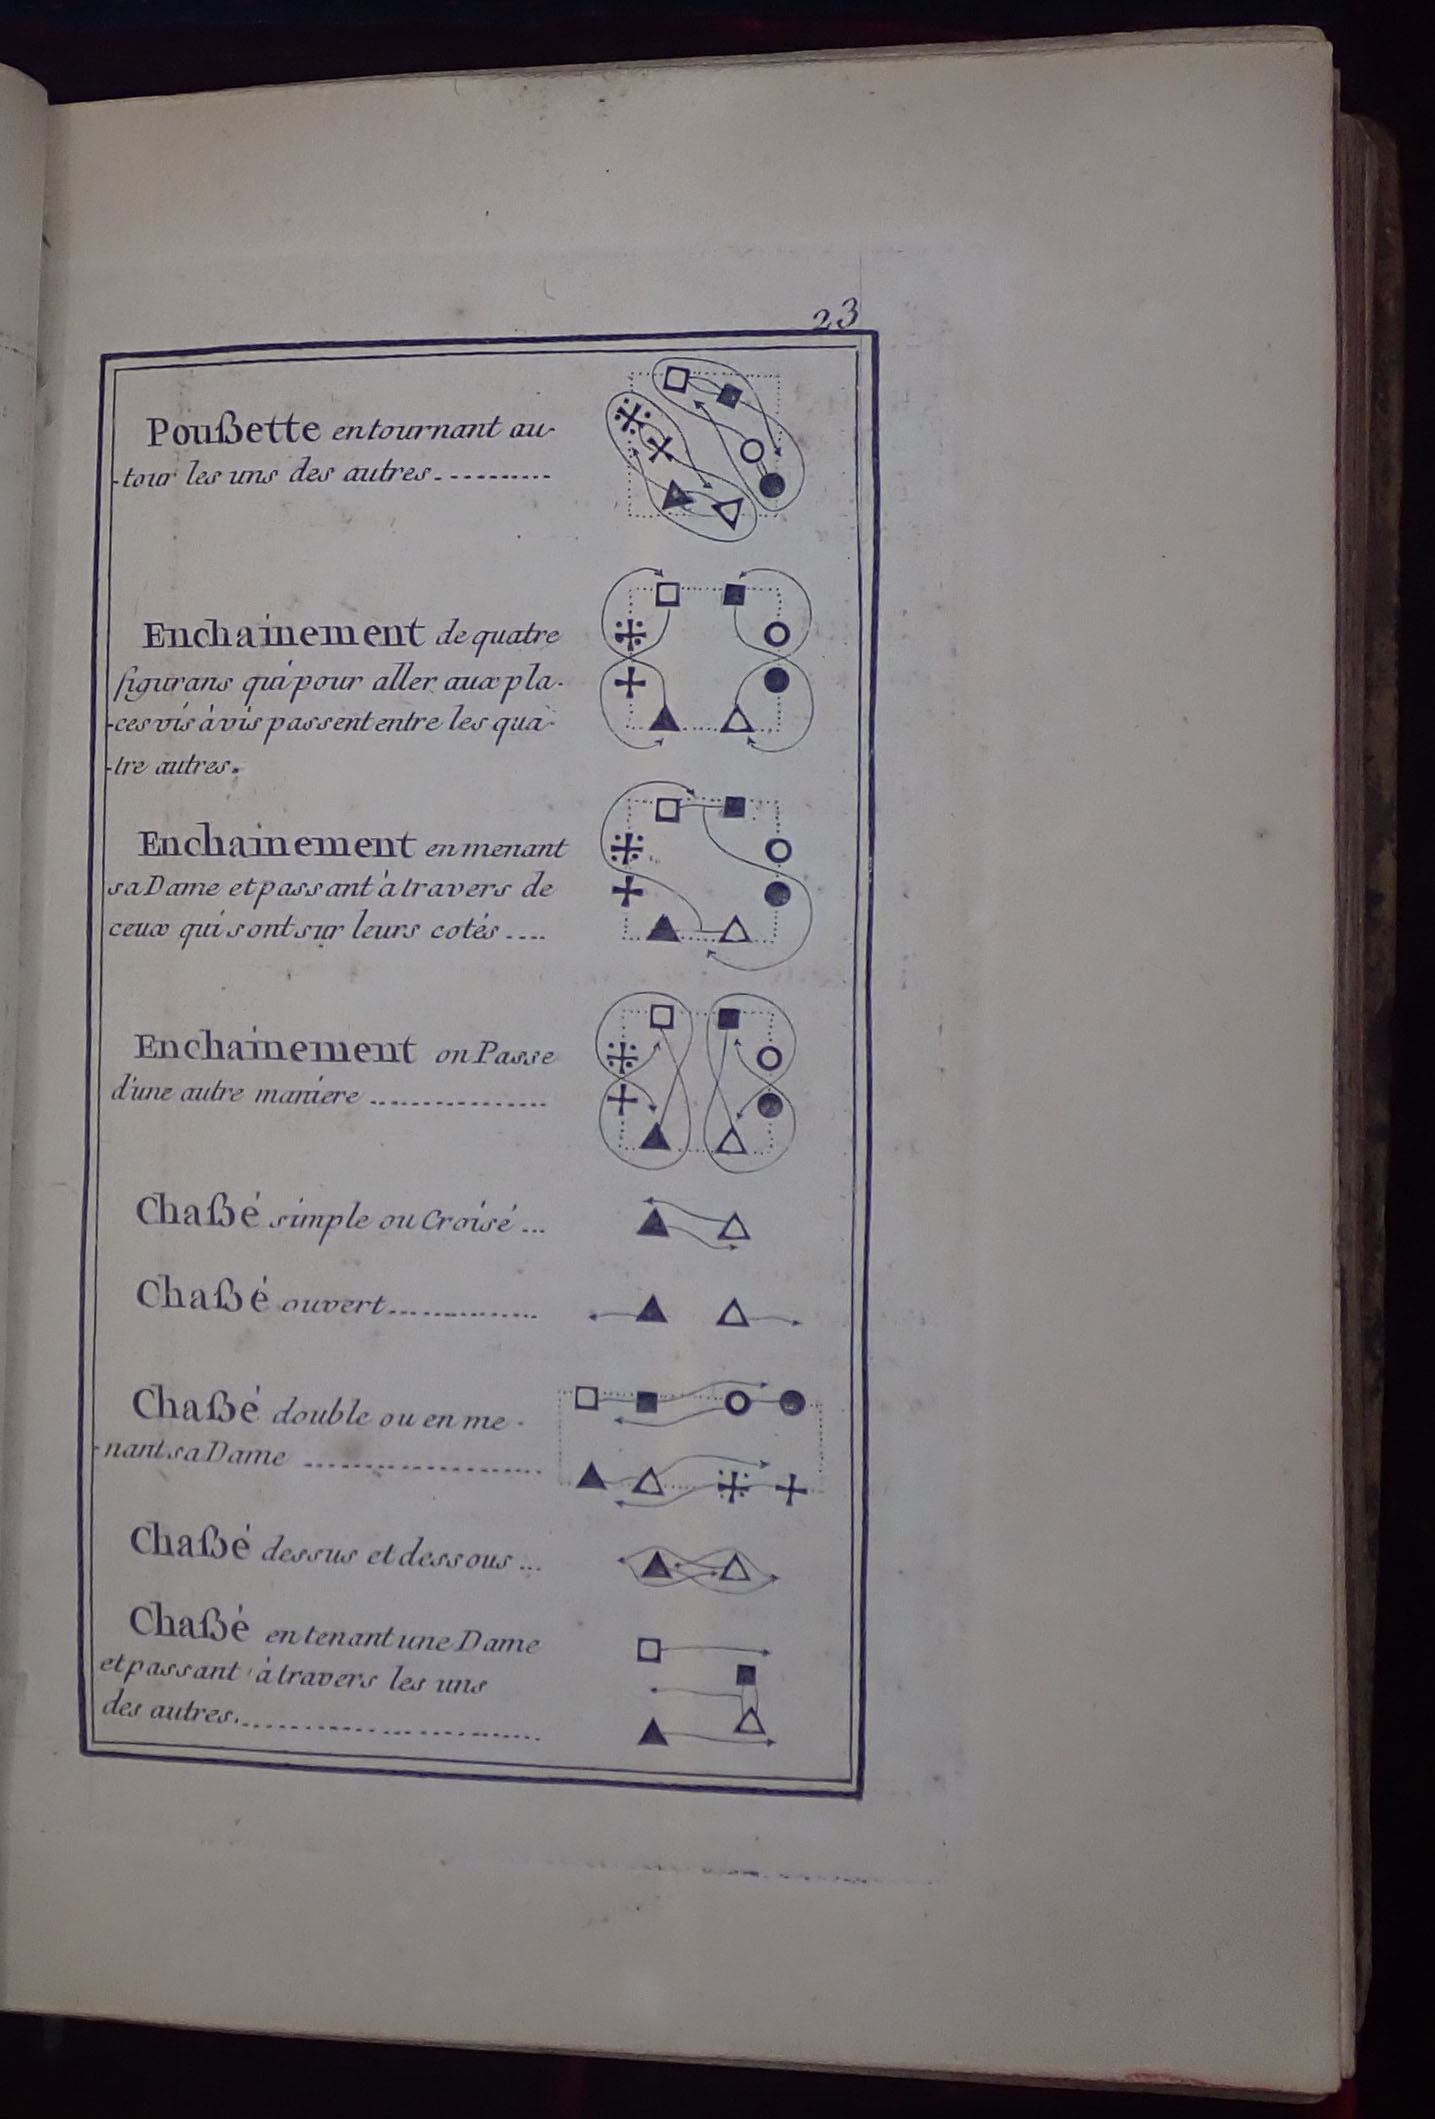 23
Poußette en tournant au-
-tour les uns des autres..........
Enchainement de quatre
figurans qui pour aller aux pla-
-ces vis à vis passent entre les qua-
-tre autres.
Enchainement en menant
sa Dame et passant à travers de
ceux qui sont sur leurs cotés....
Enchainement on Passe
d'une autre maniere .................
Chaßé simple ou Croisé ...
Chaßé ouvert...............
Chaßé double ou en me-
-nant sa Dame ......................
Chaßé dessus et dessous ...
Chaßé en tenant une Dame
et passant à travers les uns
des autres.............................